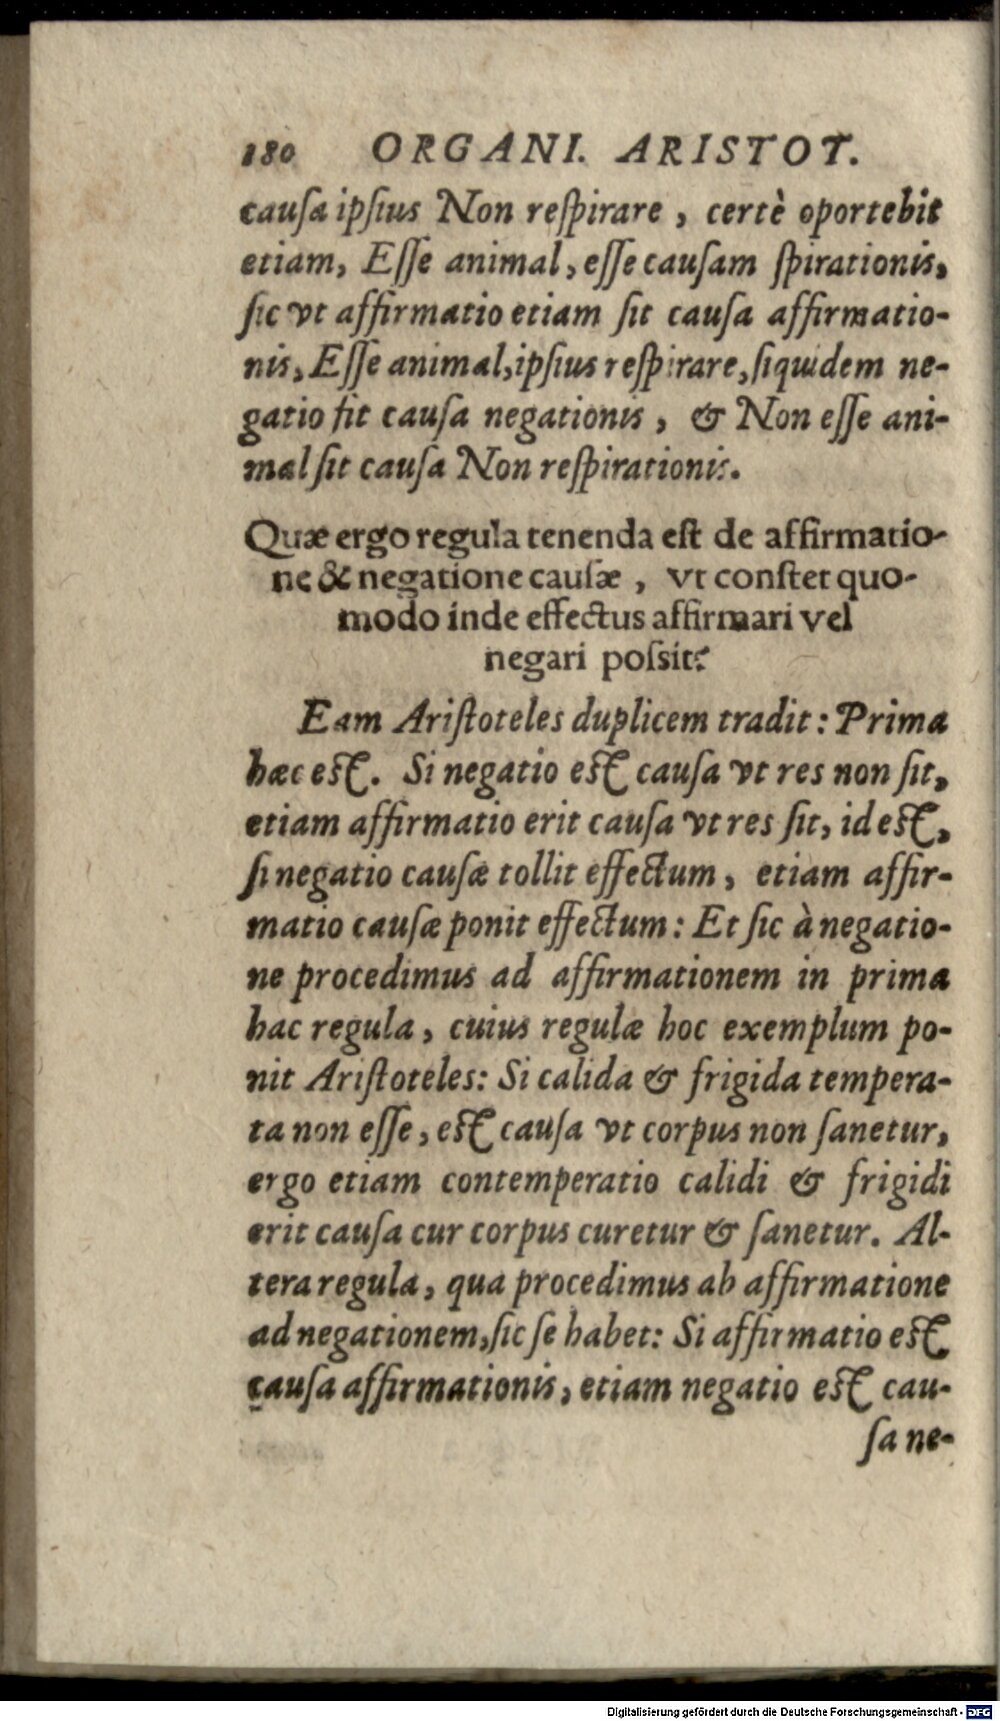 180 ORGANI. ARISTOT.
causa ipsius Non respirare, certè oportebit
etiam, Esse animal, esse causam spirationis,
sic vt affirmatio etiam sit causa affirmatio-
nis, Esse animal, ipsius respirare, siquidem ne-
gatio sit causa negationis, & Non esse ani-
mal sit causa Non respirationis.
Quæ ergo regula tenenda est de affirmatio-
ne & negatione causæ, vt constet quo-
modo inde effectus affirmari vel
negari possit?
Eam Aristoteles duplicem tradit: Prima
hæc est. Si negatio est causa vt res non sit,
etiam affirmatio erit causa vt res sit, id est,
si negatio causæ tollit effectum, etiam affir-
matio causæ ponit effectum: Et sic à negatio-
ne procedimus ad affirmationem in prima
hac regula, cuius regulæ hoc exemplum po-
nit Aristoteles: Si calida & frigida tempera-
ta non esse, est causa vt corpus non sanetur,
ergo etiam contemperatio calidi & frigidi
erit causa cur corpus curetur & sanetur. Al-
tera regula, qua procedimus ab affirmatione
ad negationem, sic se habet: Si affirmatio est
causa affirmationis, etiam negatio est cau-
sa ne-
Digitalisierung gefördert durch die Deutsche Forschungsgemeinschaft - DFG